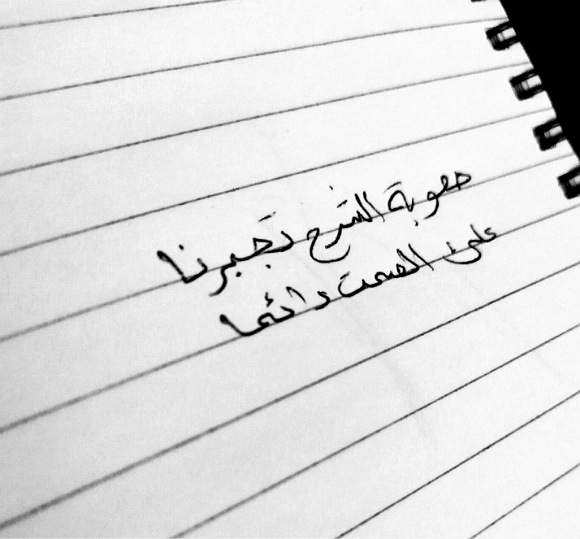 صعوبة الشرح تجبرنا
على الصمت دائما